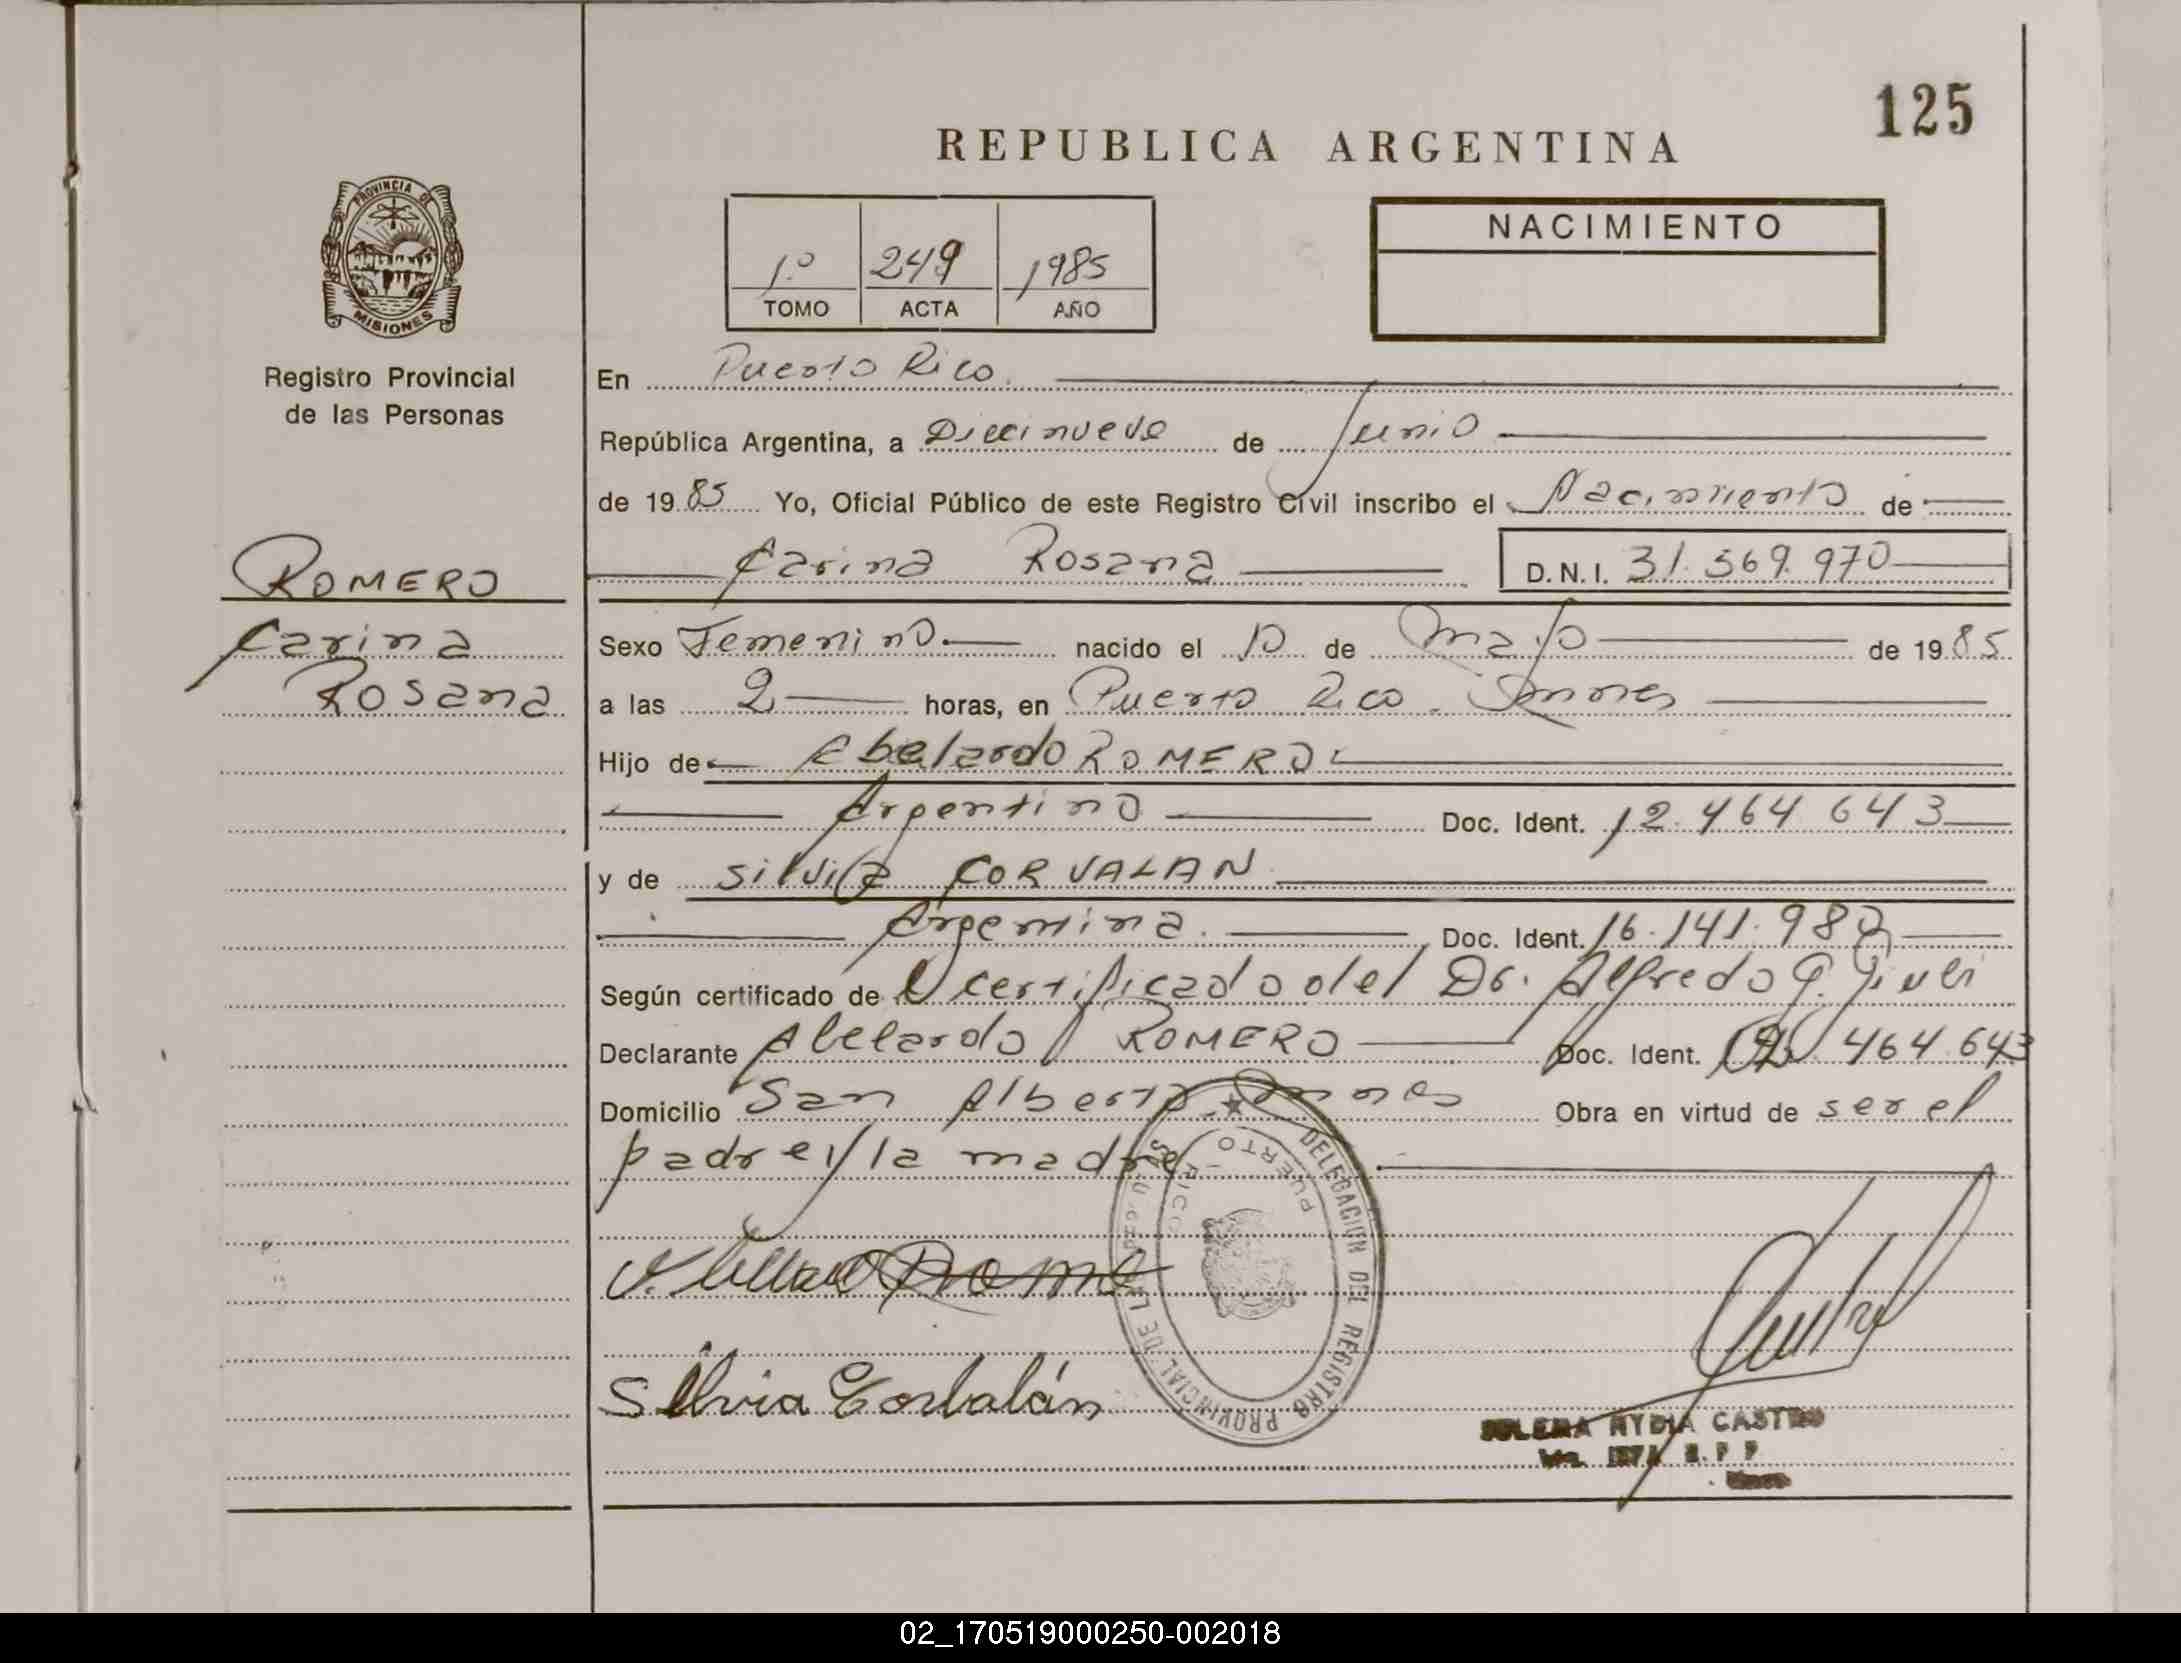 125
REPUBLICA ARGENTINA
PROVINCIA DE
MISIONES
Registro Provincial
de las Personas
1º 249 1985
TOMO ACTA AÑO
NACIMIENTO
En Puerto Rico.
República Argentina, a Diecinueve de Junio
de 1985 Yo, Oficial Público de este Registro Civil inscribo el Nacimiento de
Carina Rosana D.N.I. 31.369.970
ROMERO
Carina
Rosana
Sexo Femenino. nacido el 10 de Mayo de 1985
a las 2 horas, en Puerto Rico. Mnes
Hijo de Abelardo ROMERO
Argentino Doc. Ident. 12.464.643
y de Silvia CORVALAN
Argentina. Doc. Ident. 16.141.982
Según certificado de el certificado del Dr. Alfredo G.
Declarante Abelardo ROMERO Doc. Ident. 12.464.643
Domicilio San Alberto. Mnes Obra en virtud de ser el
padre y/la madre
DELEGACION DEL REGISTRO PROVINCIAL DE LAS
PUERTO RICO
Silvia Corbalán
NYDIA CASTRO
02_170519000250-002018